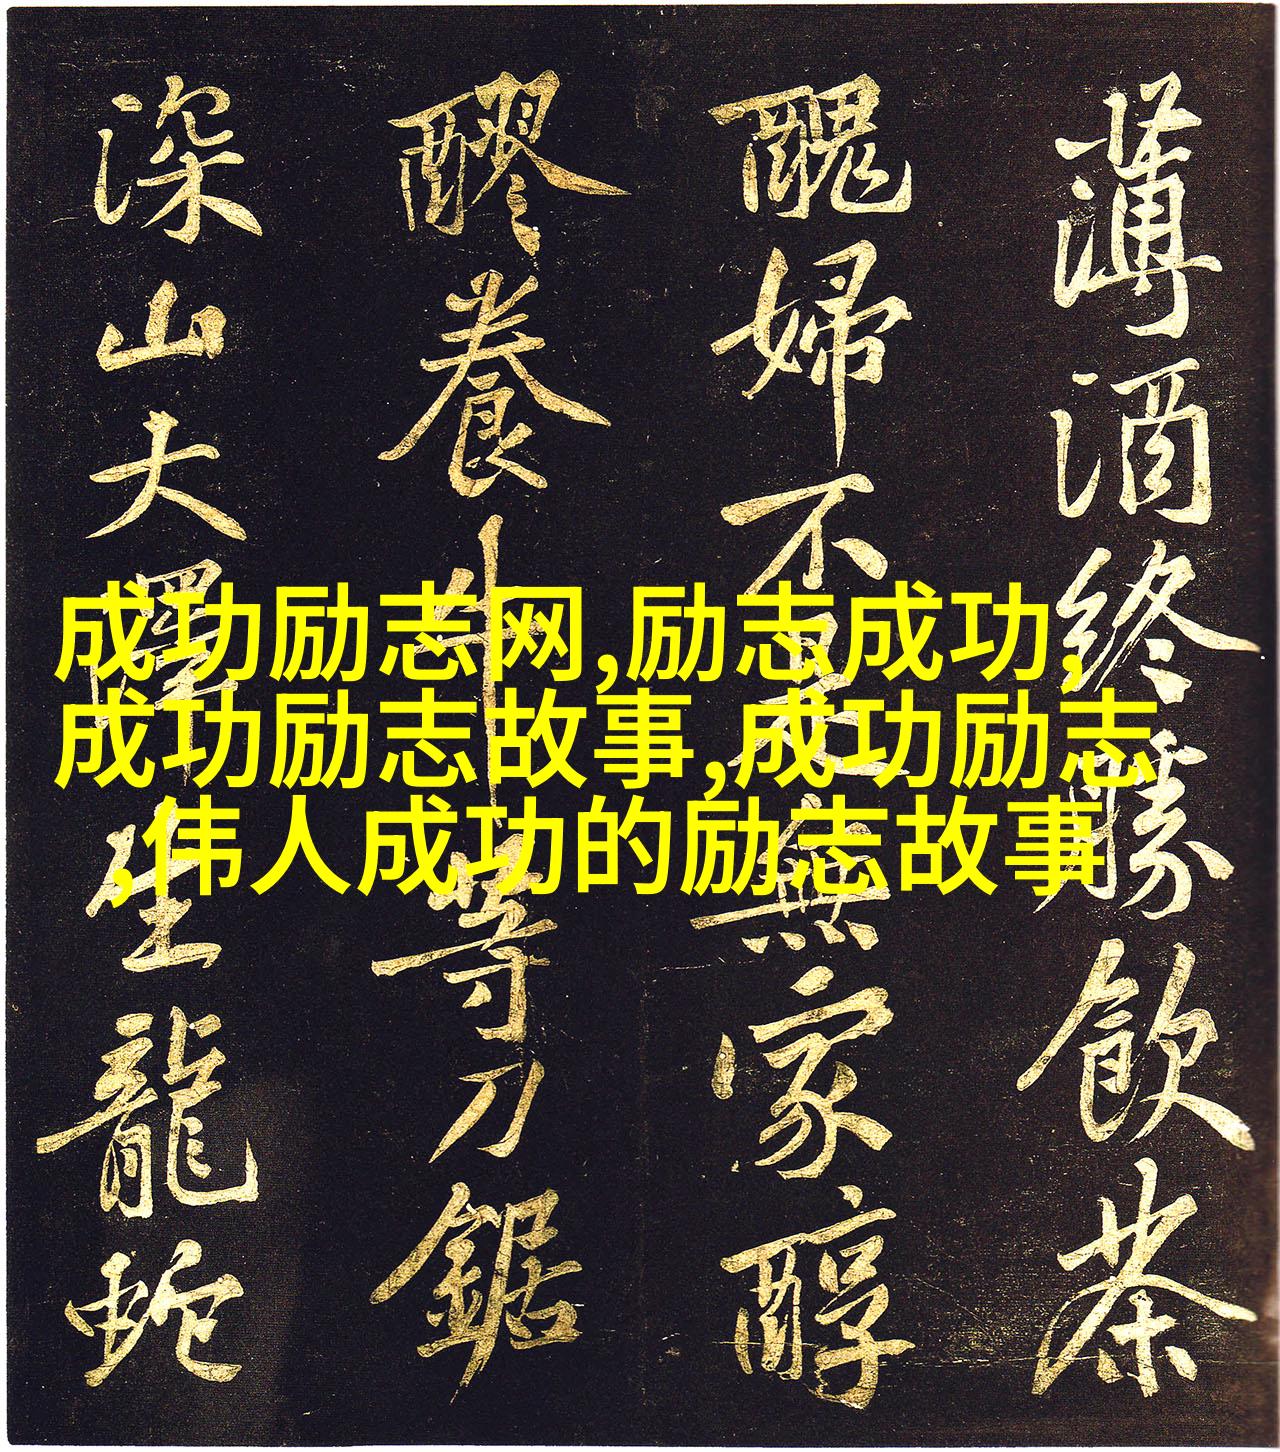 薄酒終勝飲茶
醜婦不是無家醇
醪養牛等刀鋸
深山大澤生龍蛇
成功励志网,励志成功,
成功励志故事,成功励志
,伟人成功的励志故事